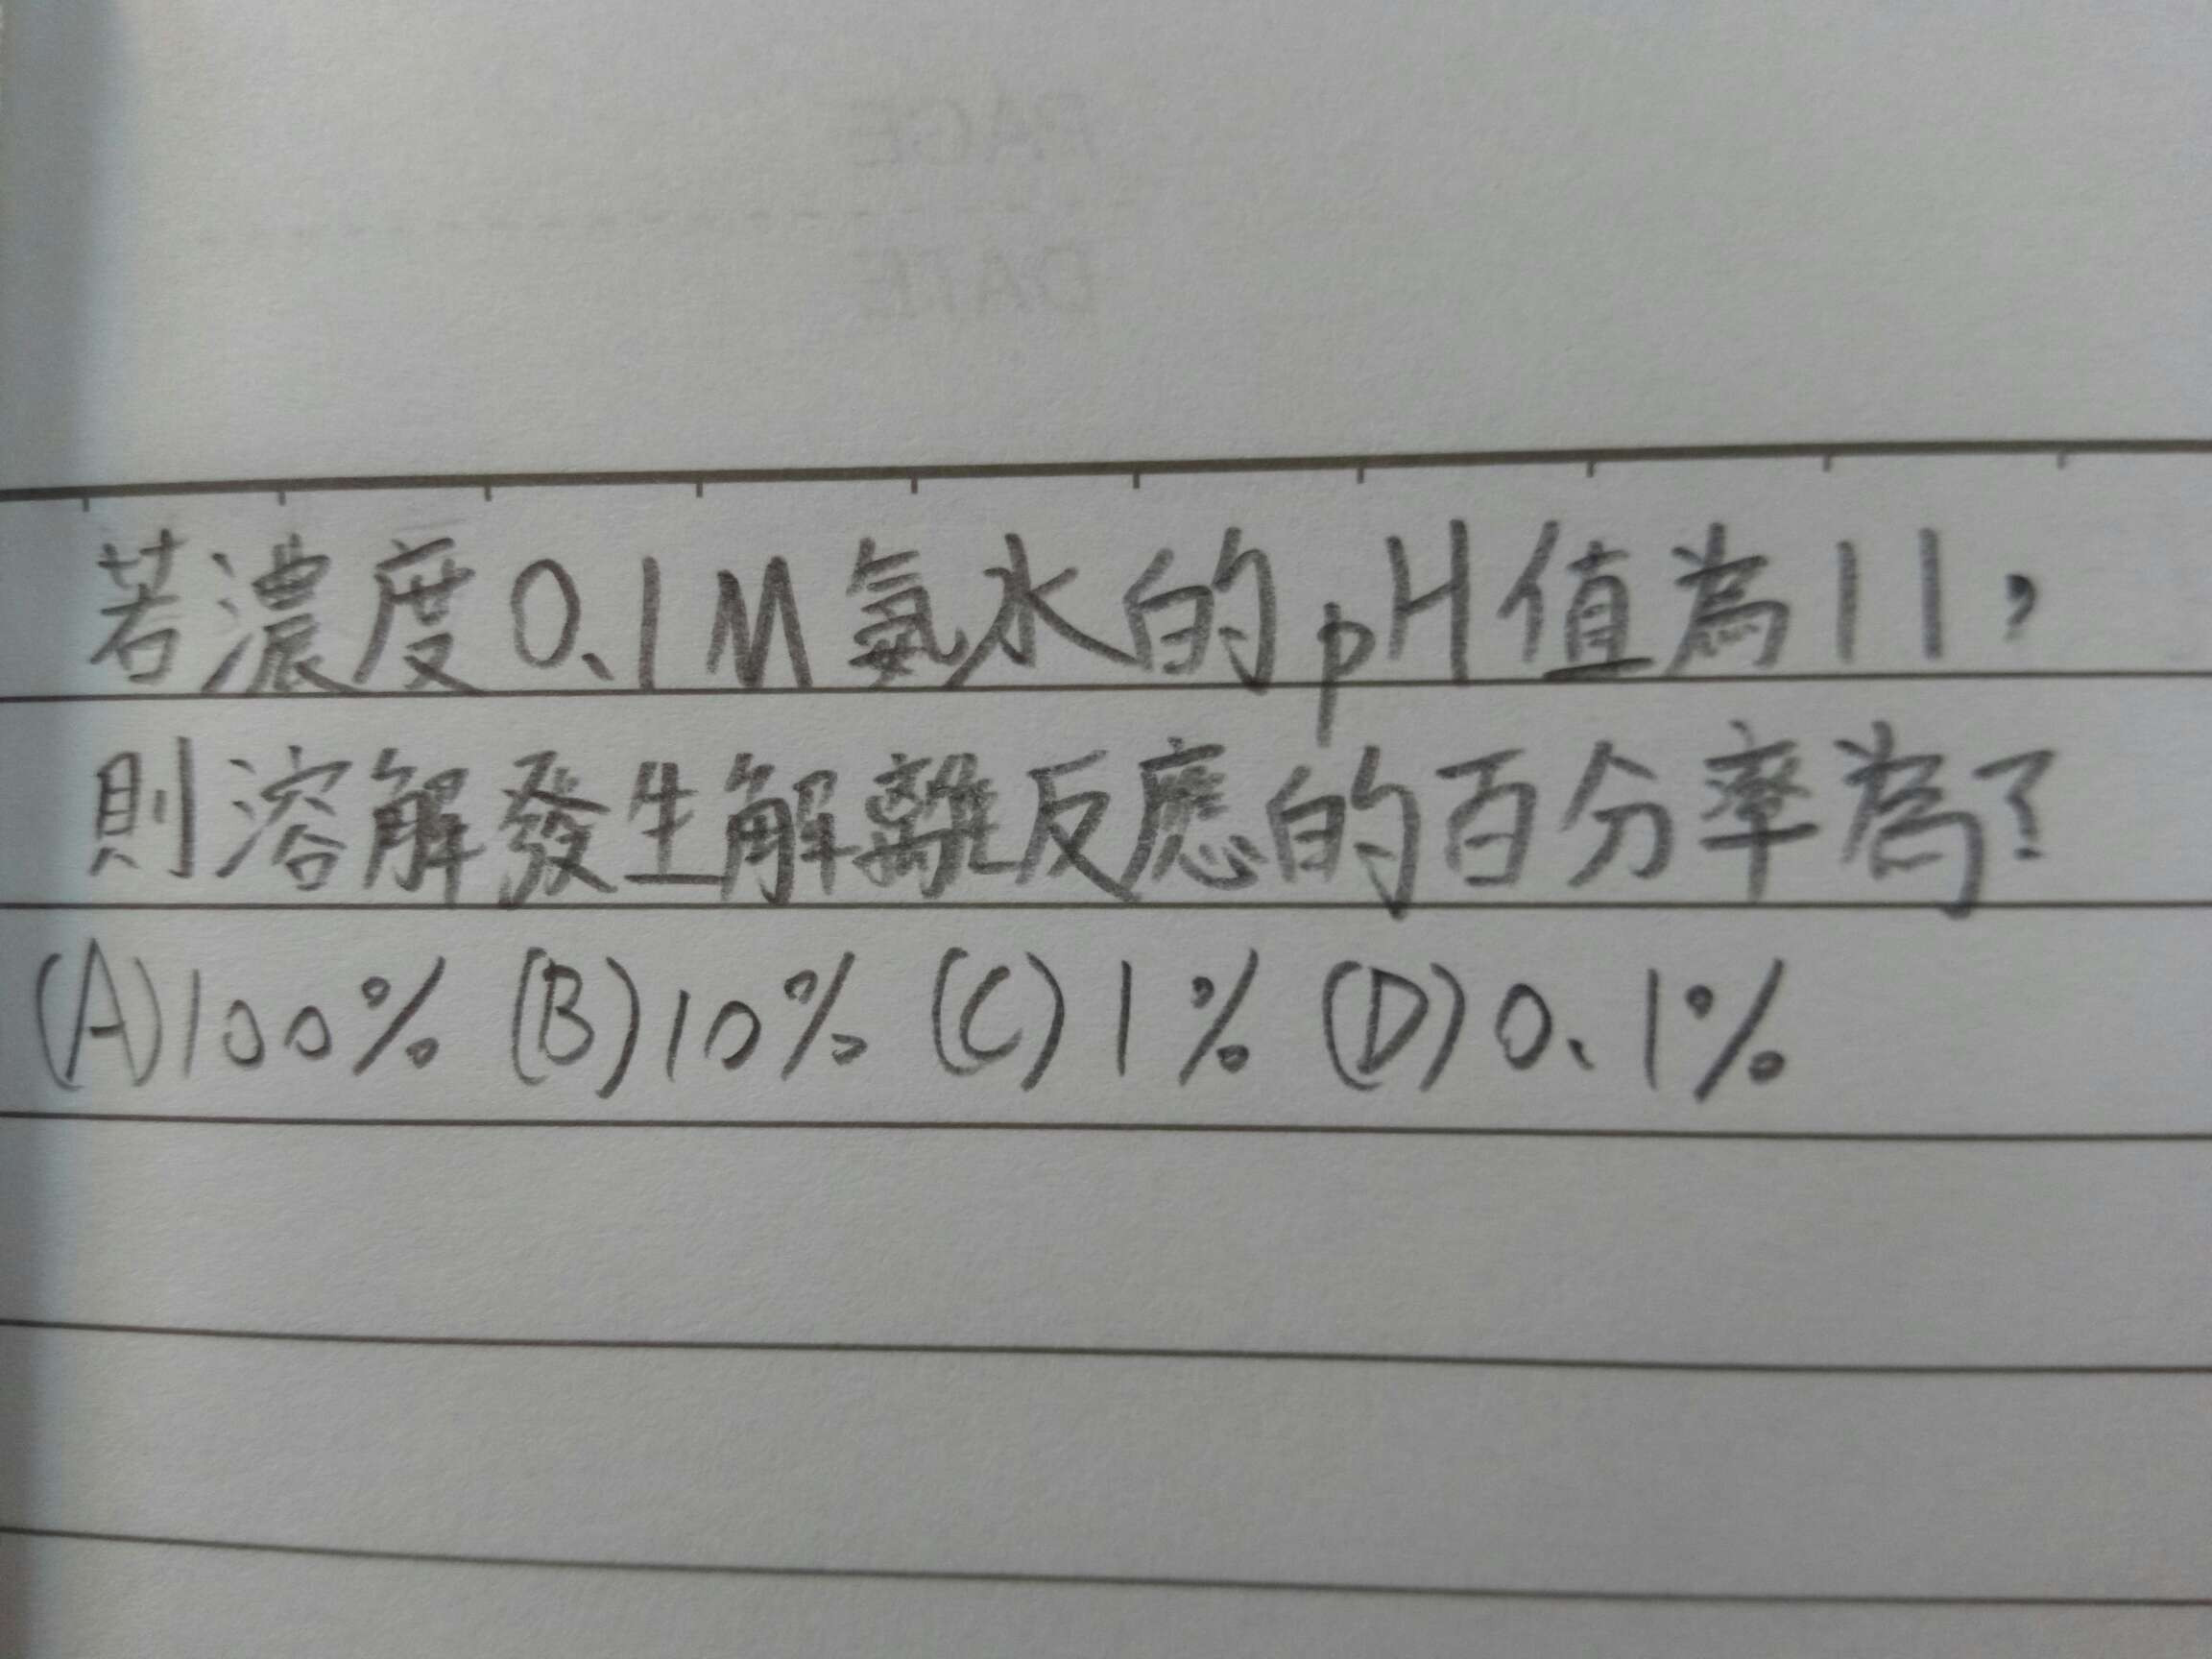 PAGE
DATE
若濃度0.1M氨水的pH值為11，
則溶解發生解離反應的百分率為?
(A)100% (B)10% (C)1% (D)0.1%